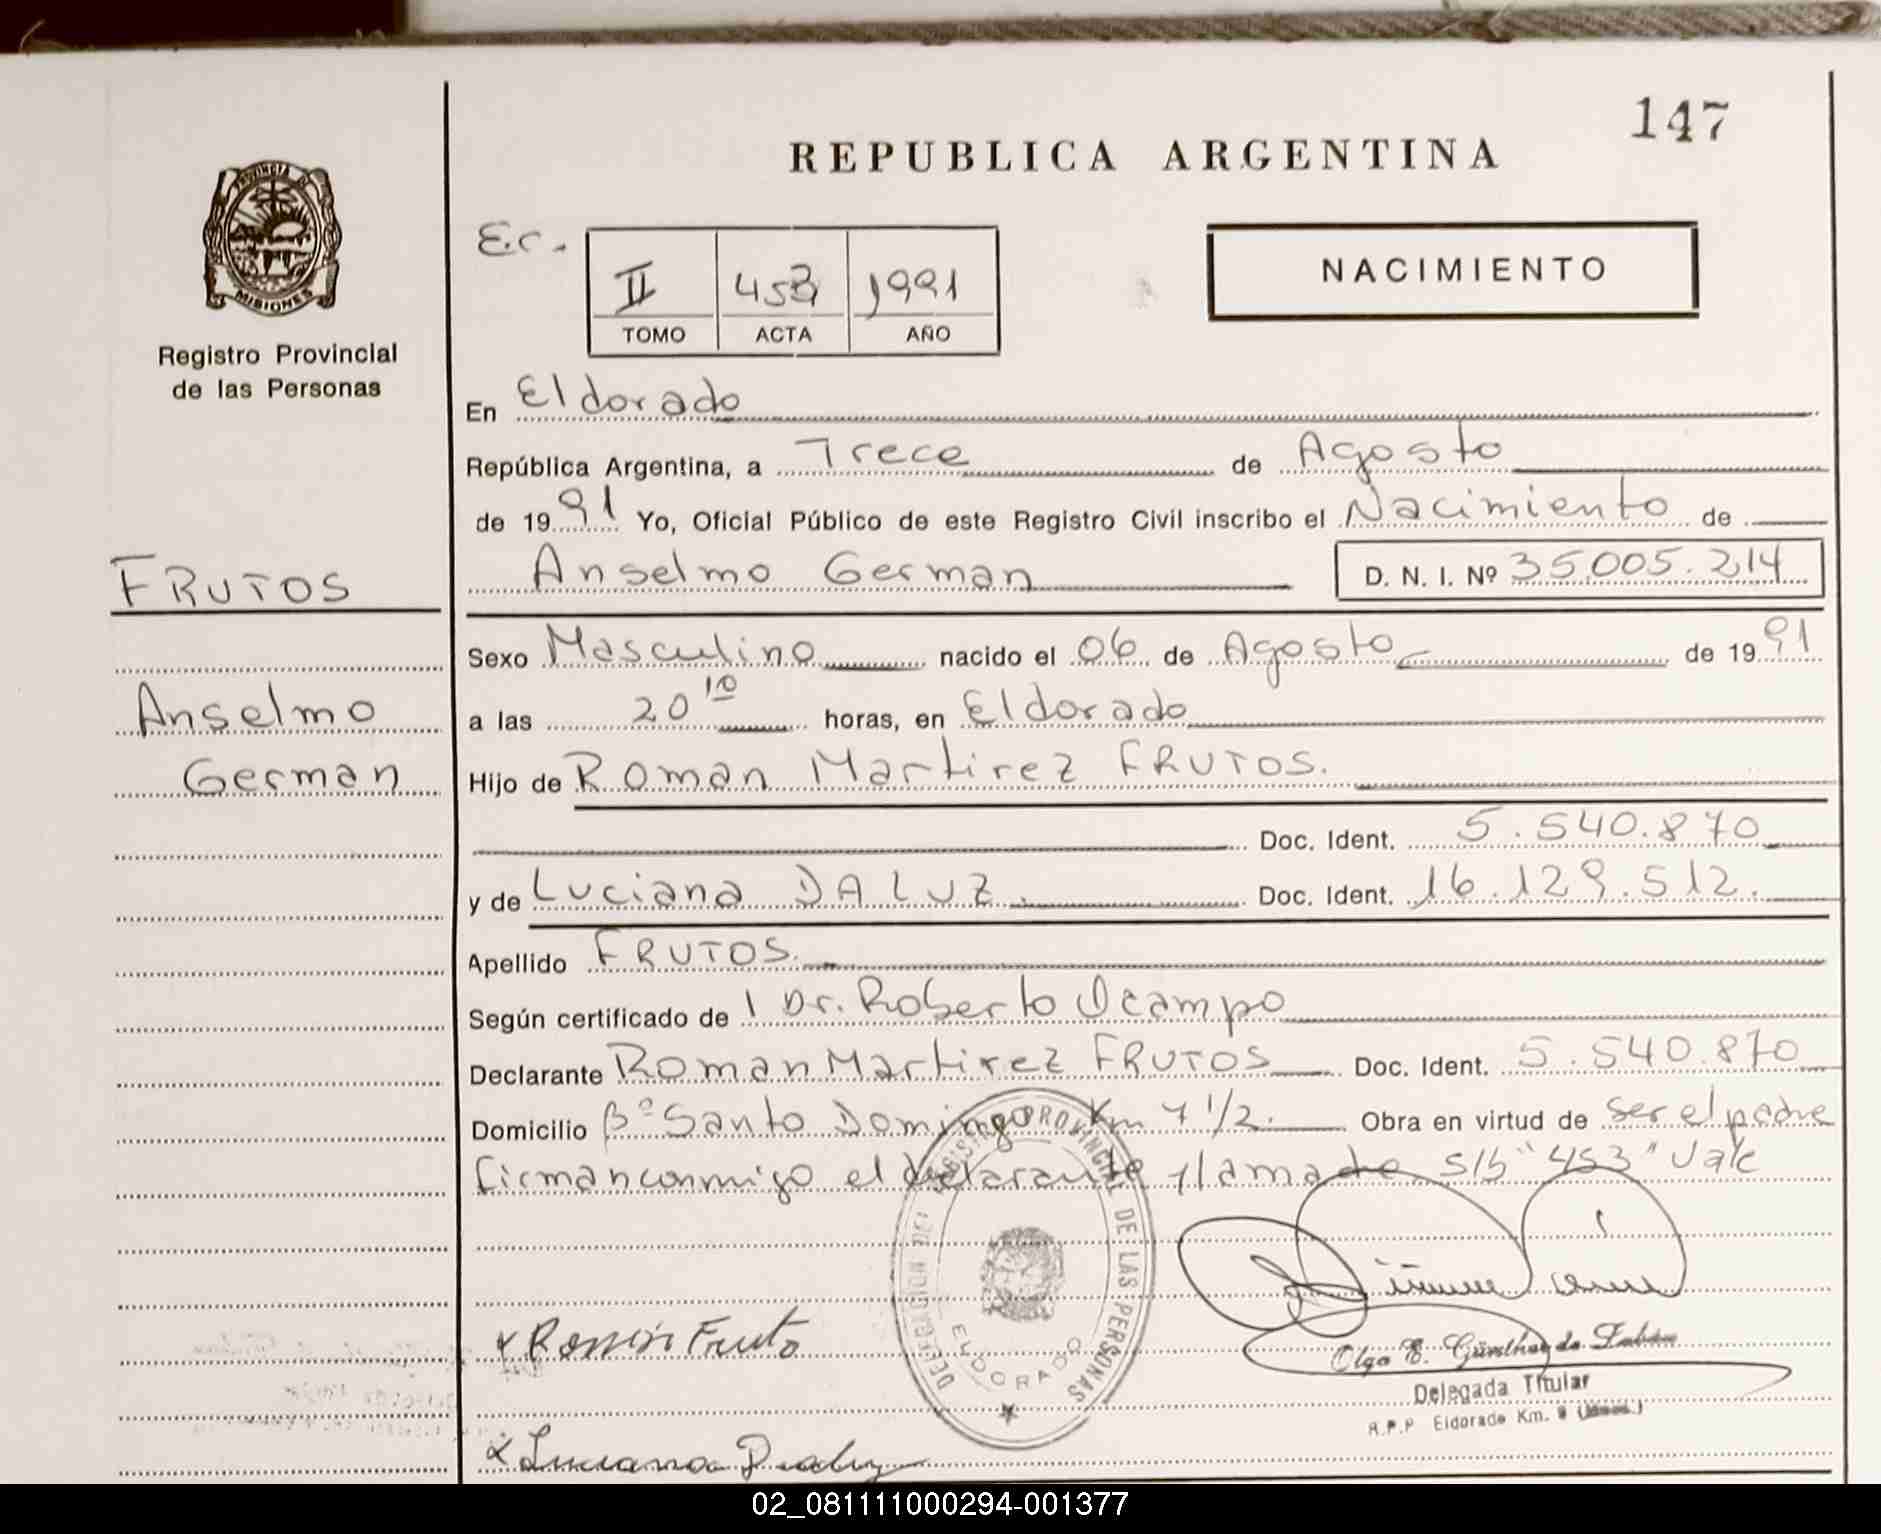 147
REPUBLICA ARGENTINA
PROVINCIA DE
MISIONES
Registro Provincial
de las Personas
E.C.
II 453 1991
TOMO ACTA AÑO
NACIMIENTO
En Eldorado
República Argentina, a Trece de Agosto
de 1991 Yo, Oficial Público de este Registro Civil inscribo el Nacimiento de
Anselmo German D. N. I. Nº 35.005.214
FRUTOS
Anselmo
German
Sexo Masculino nacido el 06 de Agosto de 1991
a las 20 10 horas, en Eldorado
Hijo de Roman Martirez FRUTOS.
Doc. Ident. 5.540.870
y de Luciana DA LUZ. Doc. Ident. 16.129.512.
Apellido FRUTOS.
Según certificado de l Dr. Roberto Ocampo
Declarante Roman Martirez FRUTOS Doc. Ident. 5.540.870
Domicilio Bº Santo Domingo Km 7 1/2. Obra en virtud de ser el padre
firman conmigo el declarante y la madre s/b "453" Vale
DELEGACION DEL REGISTRO PROVINCIAL DE LAS PERSONAS
ELDORADO
Román Fruto
Olga E. Günther de
Delegada Titular
R.P.P Eldorado Km. 9
Luciana
02_081111000294-001377